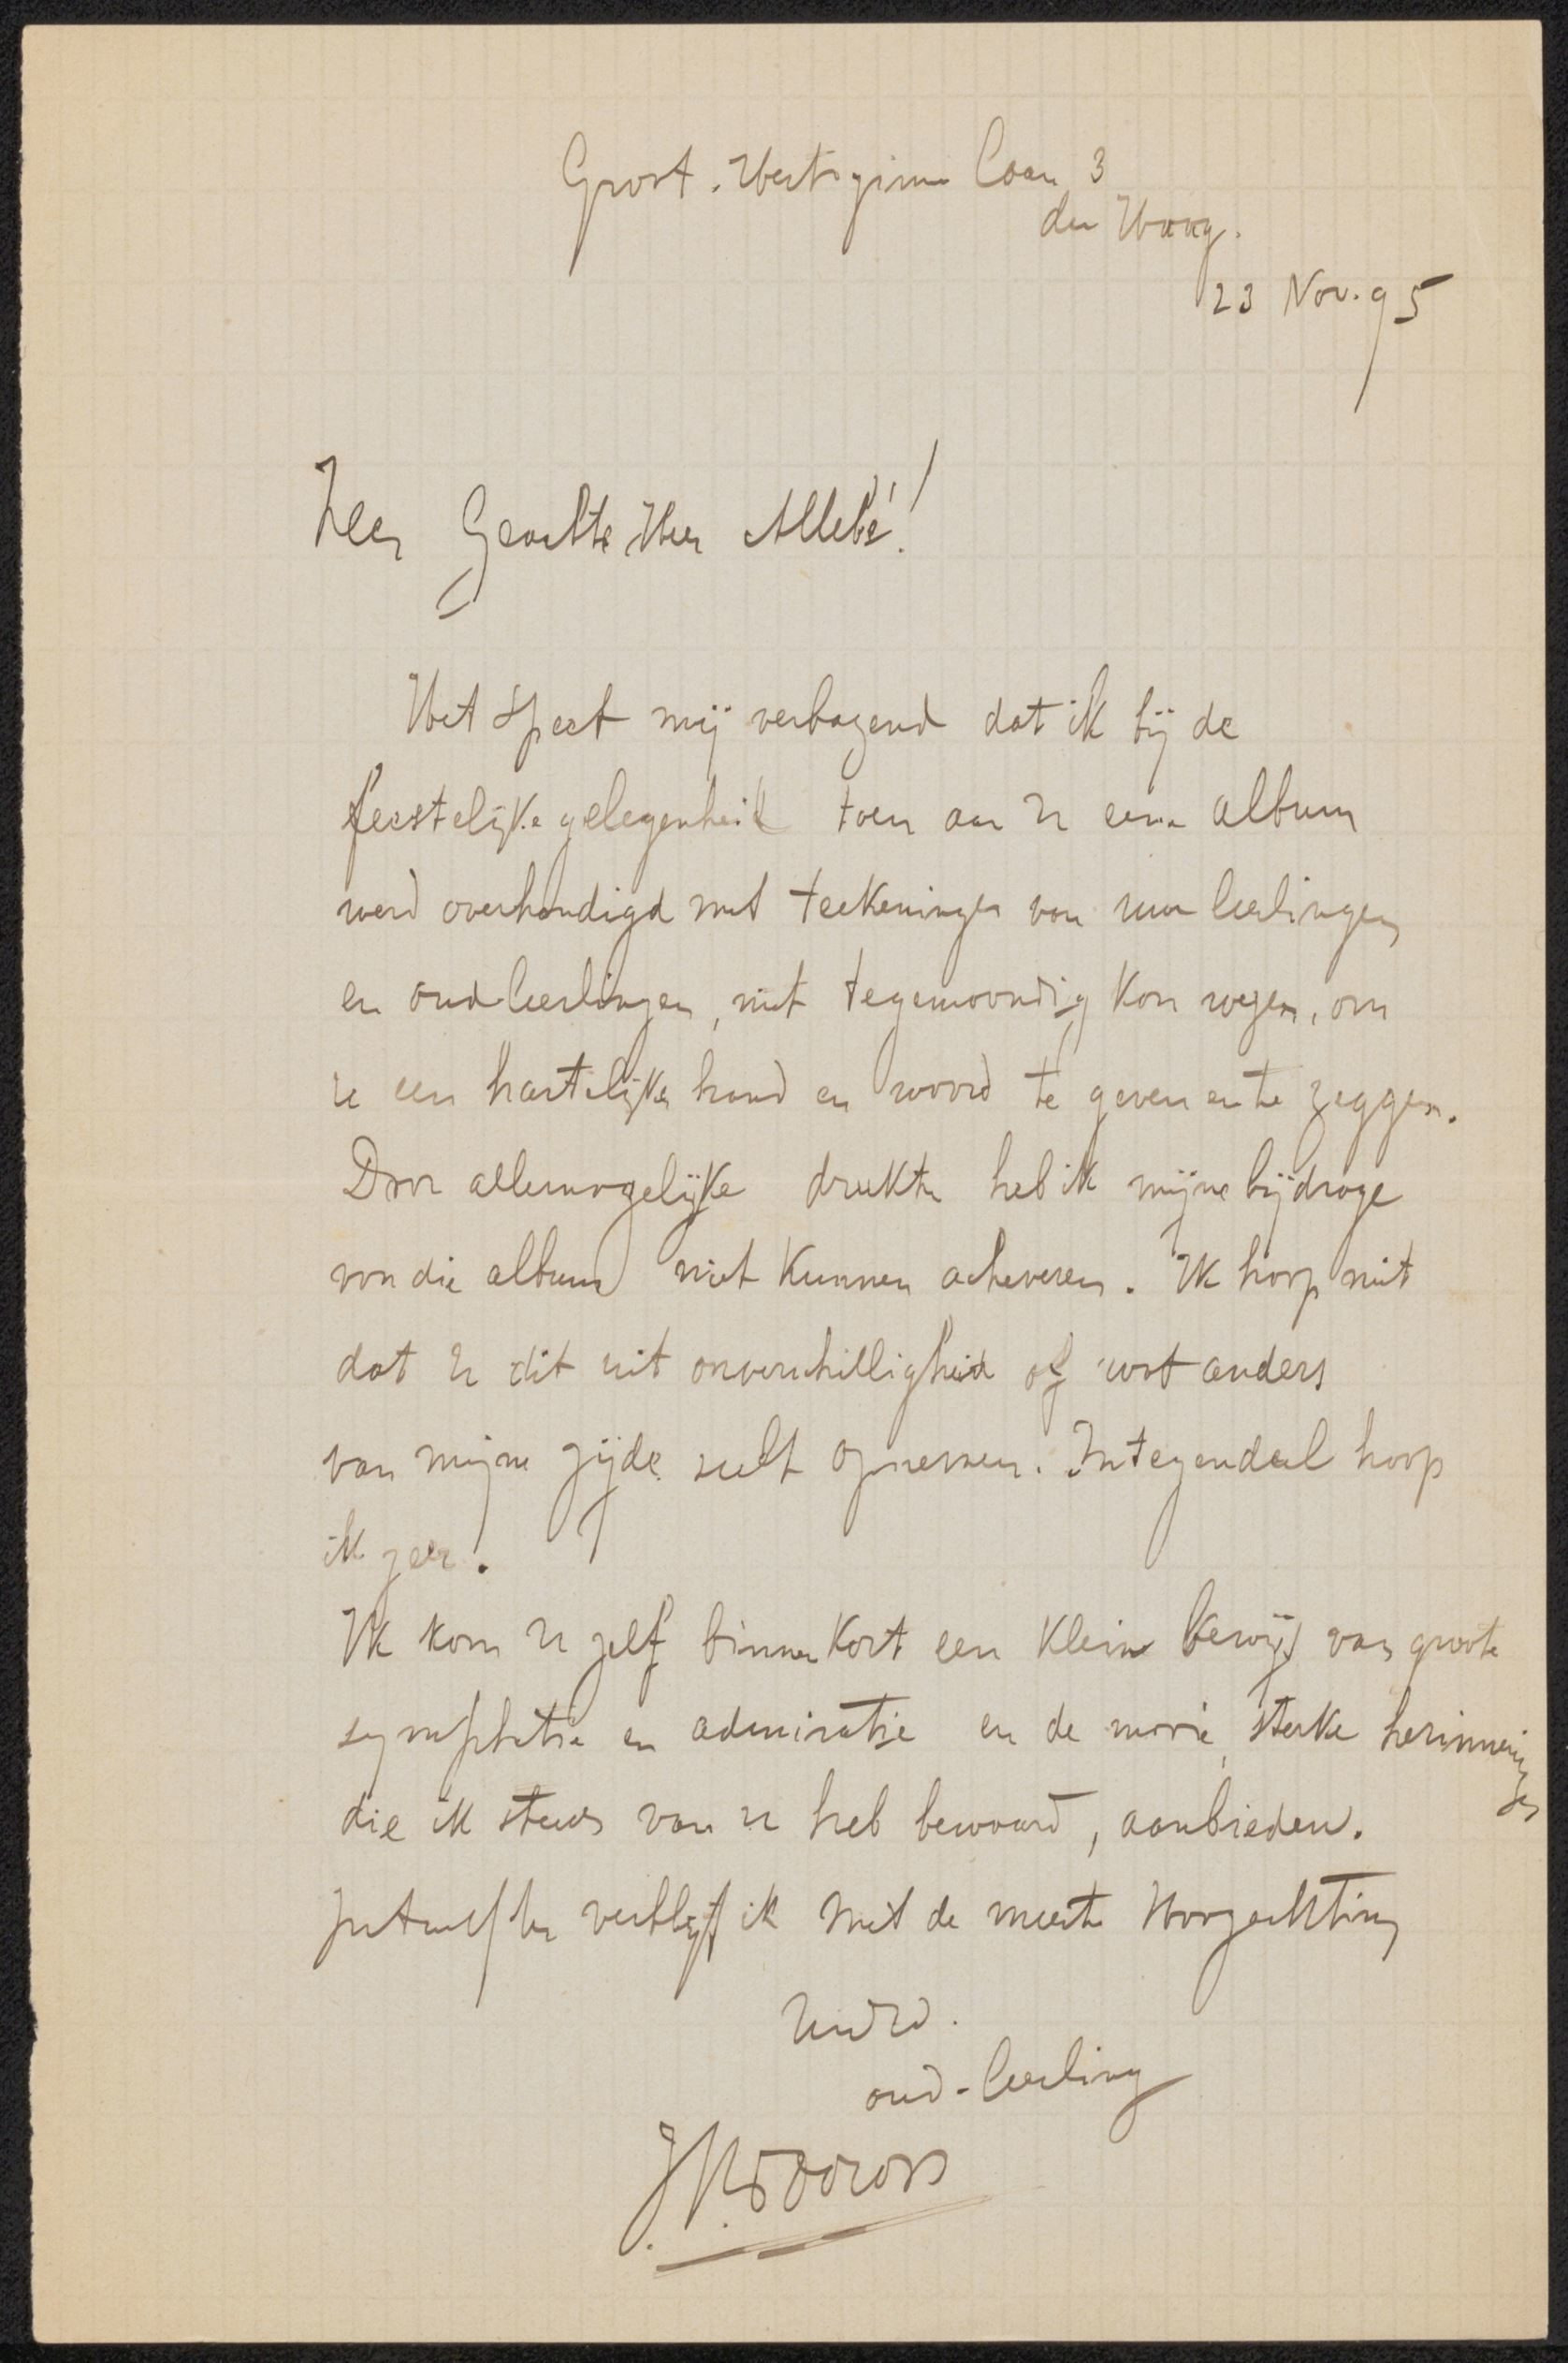 Groot. Hertoginne laan 3
den Haag.
23 Nov. 95
Zeer Geachte Heer Allebé!
Het speet mij verbazend dat ik bij de
feestelijke gelegenheid toen aan U eene album
werd overhandigd met teekeningen van uwe leerlingen
en oud-leerlingen, niet tegenwoordig kon wezen, om
u een hartelijke hand en woord te geven en te zeggen.
Door allemogelijke drukte heb ik mijne bijdrage
van die album niet kunnen acheveren. Ik hoop niet
dat U dit uit onverschilligheid of wat anders
van mijne zijde zult opnemen. Integendeel hoop
ik zeer.
Ik kom U zelf binnenkort een klein bewijs van groote
symphatie en admiratie en de mooie, sterke herinneringen
die ik steeds van u heb bewaard, aanbieden.
verblijf ik met de meeste Hoogachting
UwdW.
oud-leerling
J.Th. Toorop